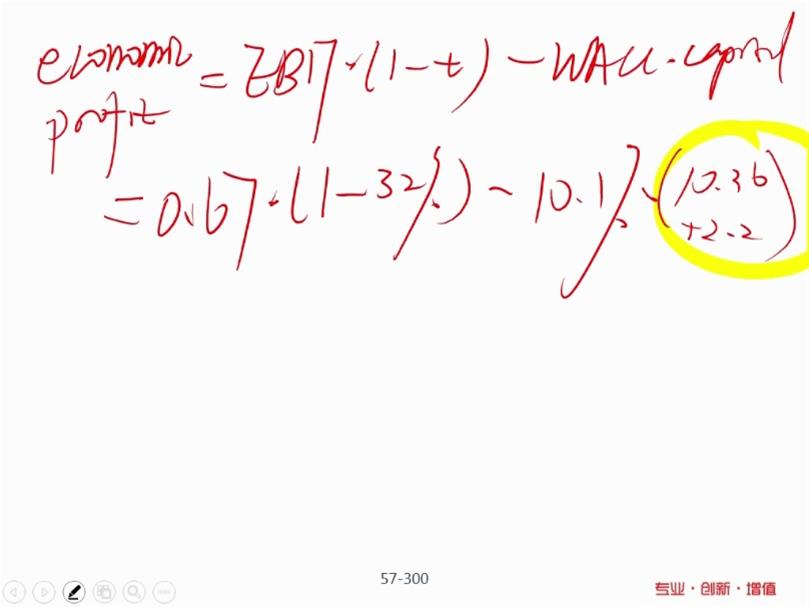 economic profit = EBIT·(1-t) - WACC·capital
= 0.67·(1-32%) - 10.1%·(10.36+2.2)
57-300
专业·创新·增值